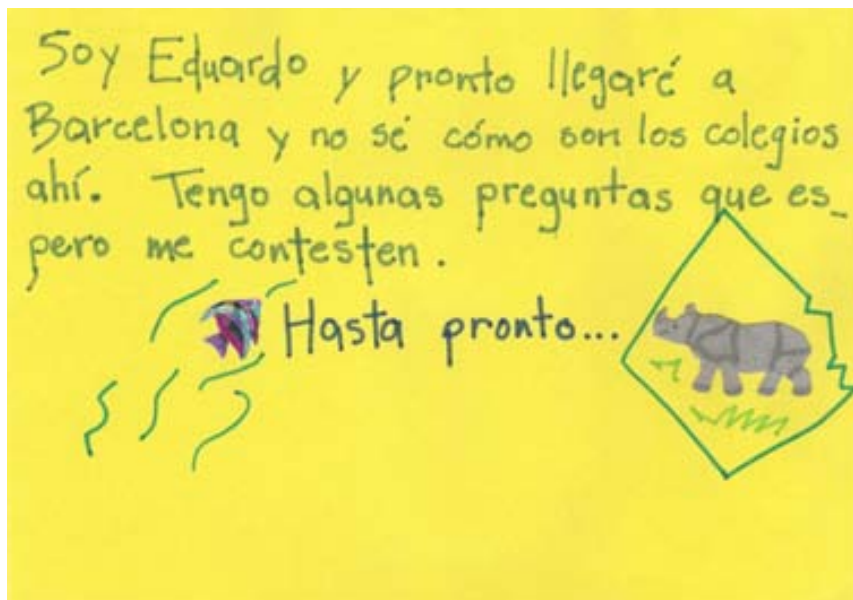 Soy Eduardo y pronto llegaré a
Barcelona y no sé cómo son los colegios
ahí. Tengo algunas preguntas que es_
pero me contesten.
Hasta pronto...